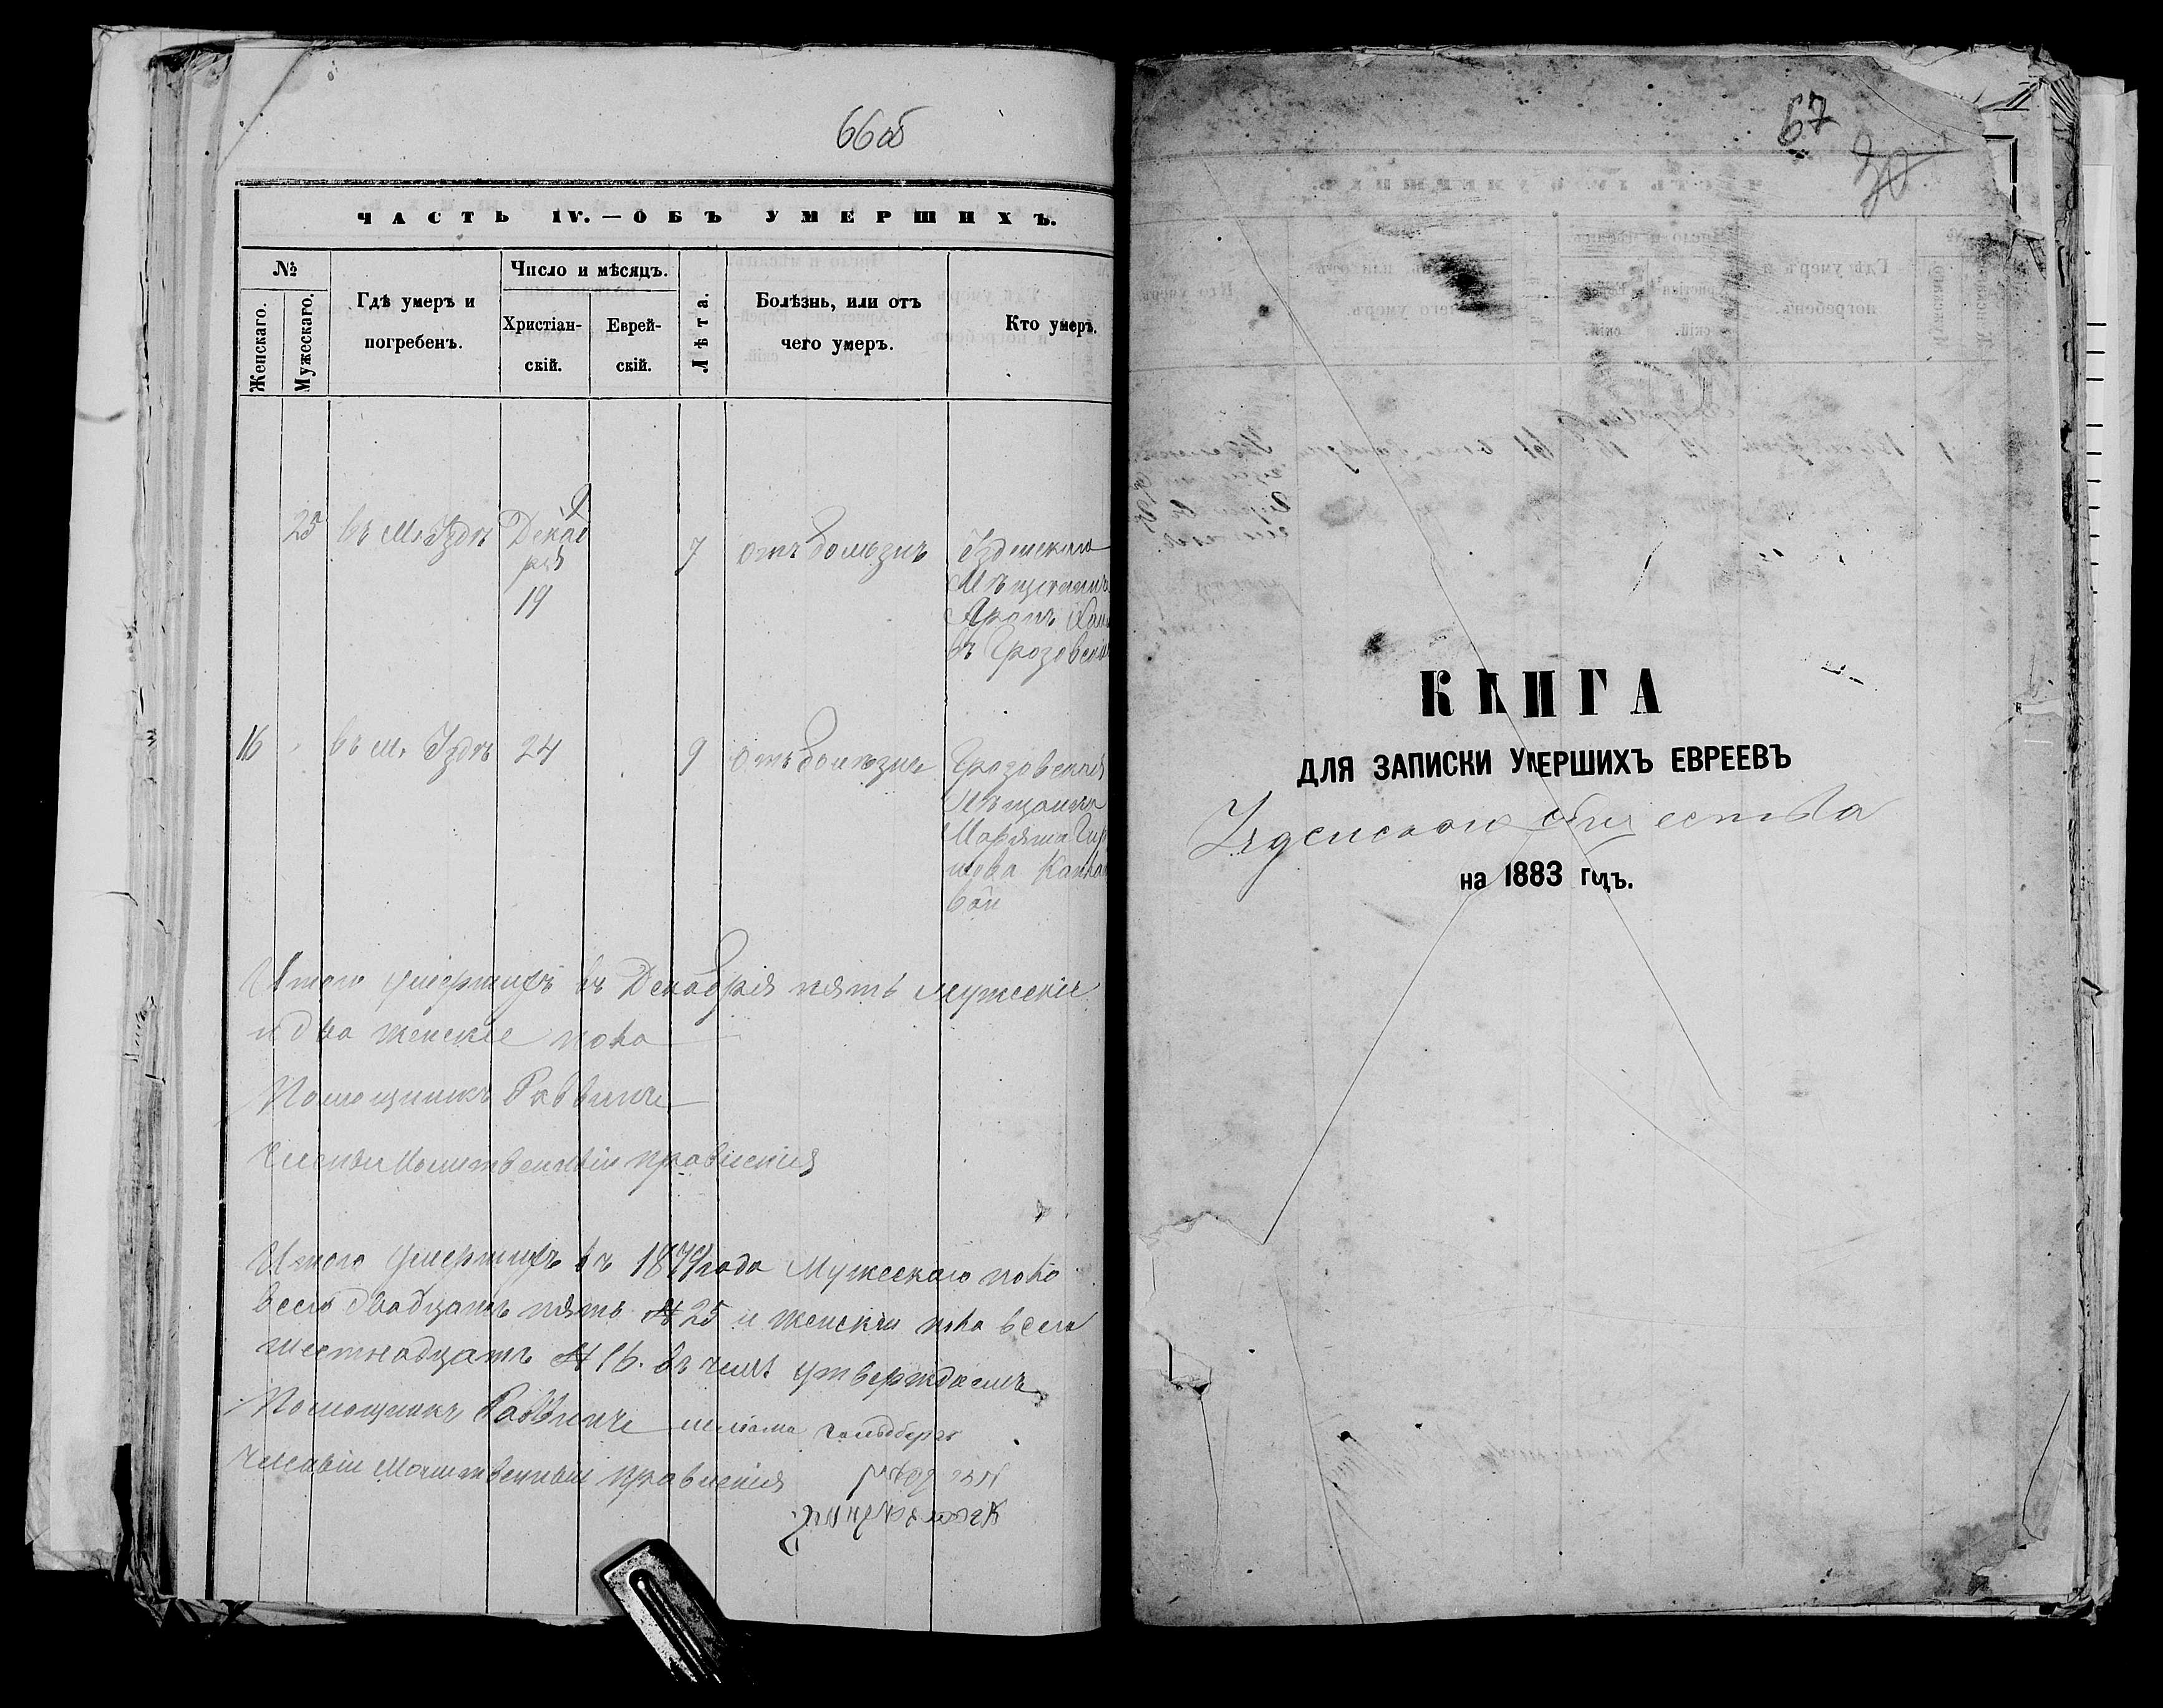 66об
ЧАСТЬ IV. — ОБЪ УМЕРШИХЪ.
№
Женскаго.
Мужескаго.
Гдѣ умеръ и
погребенъ.
Число и мѣсяцъ.
Христіан-
скій.
Еврей-
скій.
Лѣта.
Болѣзнь, или отъ
чего умеръ.
Кто умеръ.
25 въ М. Уздѣ Декаб
ря
19
7 отъ болѣзнъ
Узденскаго
Мѣщанинъ
Аронъ
въ Грозовскій
16 въ м. Уздѣ 24 9 отъ болѣзнъ
Грозовская
Мѣщанка
Маряша
нова
вой
Итого умершихъ въ Декабрія пять мужскіе
и два женскіе пола
Помощникъ Раввина
Члены Молитвенный правленія
Итого умершихъ въ 1879 года Мужескаго пола
всего двадцать пять № 25 и женскій пола всего
шестнадцать № 16. въ чемъ утверждаемъ
Помощникъ Раввина Гольдбергъ
Члены Молитвенный правленія
67
КНИГА
ДЛЯ ЗАПИСКИ УМЕРШИХЪ ЕВРЕЕВЪ
Узденскаго общества
на 1883 годъ.